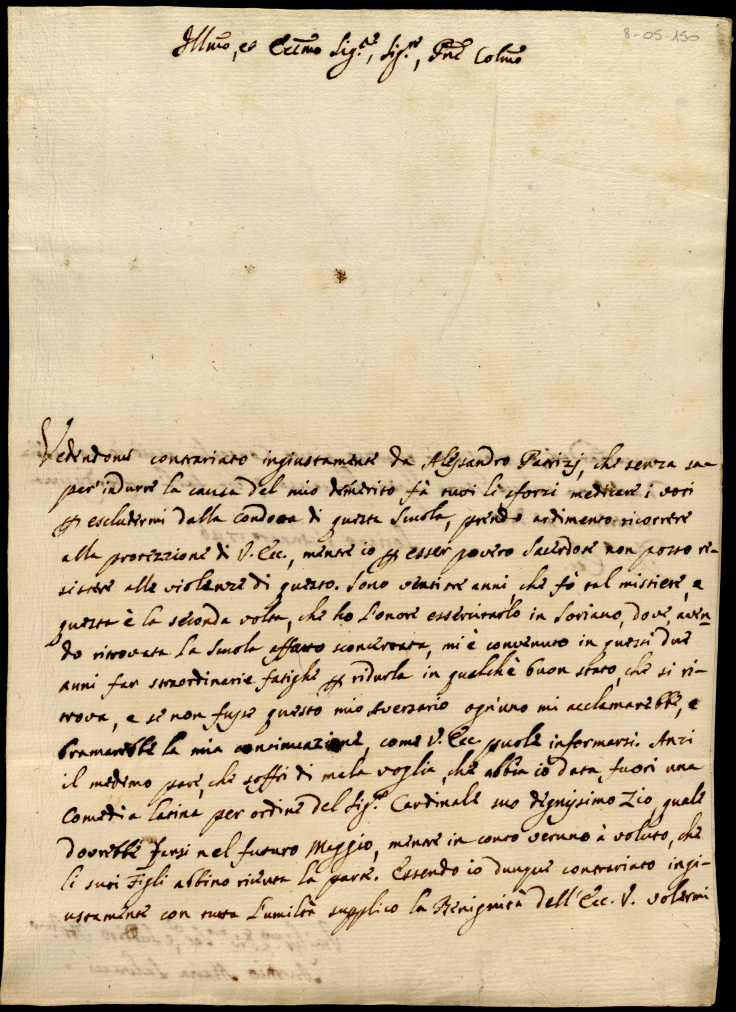 8-05-150
Illmo, et Eccmo Sig.re, Sig.re, Pne Colmo
Vedendomi contrariato ingiustamente da Alessandro Patrizj, che senza sa-
per indurre la causa del mio demerito fà tutti li sforzi medicare i voti
p escludermi dalla condotta di questa Scuola, prendo ardimento ricorrere
alla protezzione di V. Ecc., mentre io p esser povero Sacerdote non posso re-
sistere alle violenze di questo. Sono venti tre anni, che fò tal mistiere, e
questa è la seconda volta, che hò l'onore essercitarlo in Soriano, dove, aven-
do ritrovata la Scuola affatto sconcertata, mi è convenuto in questi due
anni far straordinarie fatighe p ridurla in qualchè buon stato, che si ri-
trova, e se non fusse questo mio Aversario ogn'uno mi acclamarebbe, e
bramarebbe la mia continuazione, come V. Ecc. puole informarsi. Anzi
il medemo pare, che soffri di mala voglia, che abbia io data fuori una
Comedia latina per ordine del Sig.re Cardinale suo degnissimo Zio, quale
dovrebbe farsi nel futuro Maggio, mentre in conto veruno à voluto, che
li suoi Figli abbino ricevuta la parte. Essendo io dunque contrariato ingi-
ustamente con tutta l'umiltà supplico la Benignità dell'Ecc. V. volermi